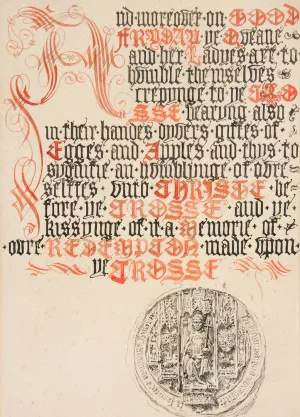 And moreover on GOOD
FRYDAY ye Queane
and her Ladyes are to
humble themselves
crepinge to ye CRO
SSE bearyng also
in their handes dyvers giftes of
Egges and Apples and thus to
symifie an humblynge of oure
selfes unto CHRISTE be
fore ye CROSSE and ye
kissynge of it a Memorie of
oure REDEMPTON made upon
ye CROSSE